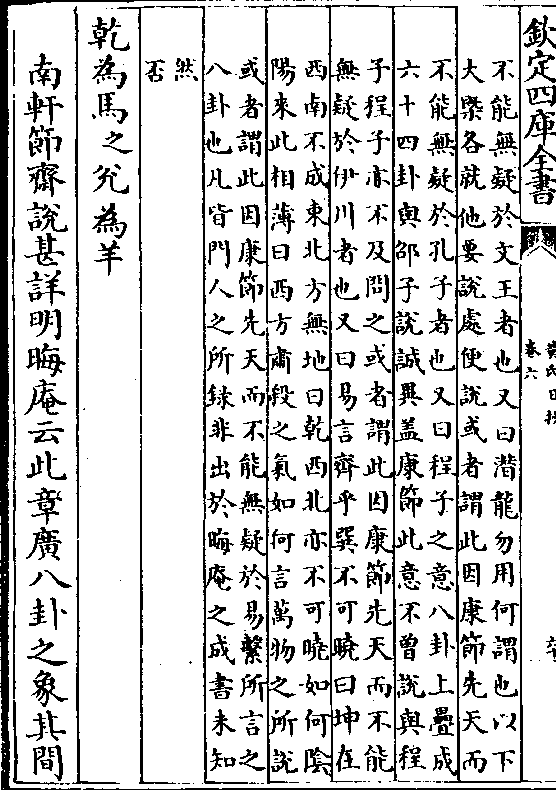 欽定四庫全書
黃氏日抄
卷六
不能無疑於文王者也又曰潛龍勿用何謂也以下
大槩各就他要說處便說或者謂此因康節先天而
不能無疑於孔子者也又曰程子之意八卦上疊成
六十四卦與邵子說誠異盖康節此意不曾說與程
子程子亦不及問之或者謂此因康節先天而不能
無疑於伊川者也又曰易言齊乎巽不可曉曰坤在
西南不成東北方無地曰乾西北亦不可曉如何隂
陽來此相薄曰西方肅殺之氣如何言萬物之所說
或者謂此因康節先天而不能無疑於易繫所言之
八卦也凡皆門人之所録非出於晦庵之成書未知
然
否
乾為馬之兊為羊
南軒節齋說甚詳明晦庵云此章廣八卦之象其間